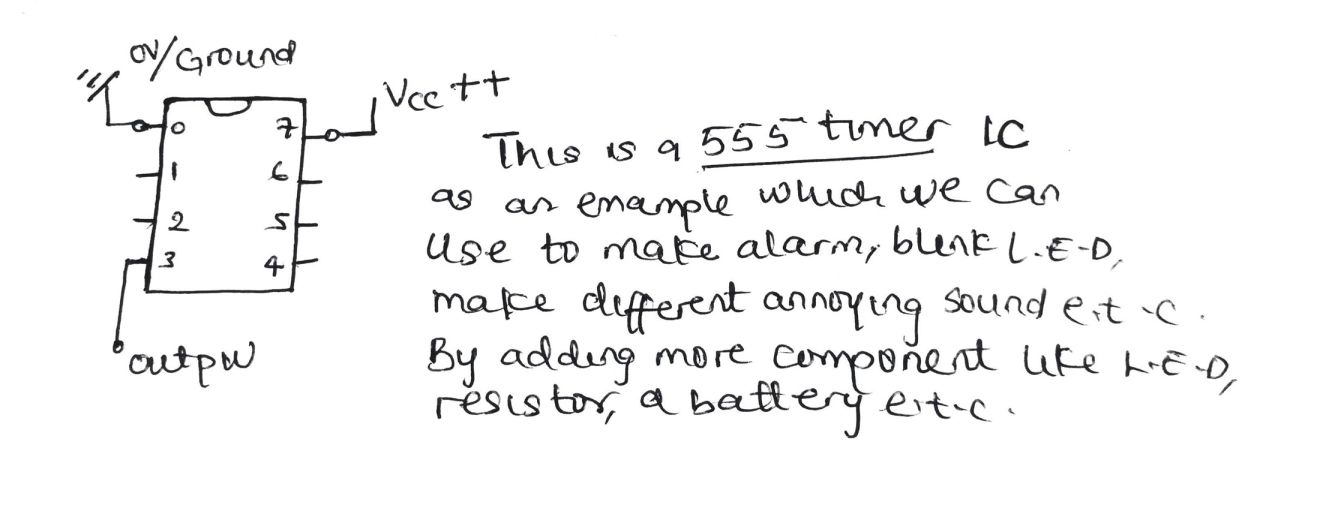 0V/Ground
Vcc ++
0 7
1 6
2 5
3 4
output
This is a 555 timer IC
as an enample which we can
use to make alarm, blink L.E.D,
make different annoying sound e.t.c.
By adding more component like L.E.D,
resistor, a battery e.t.c.